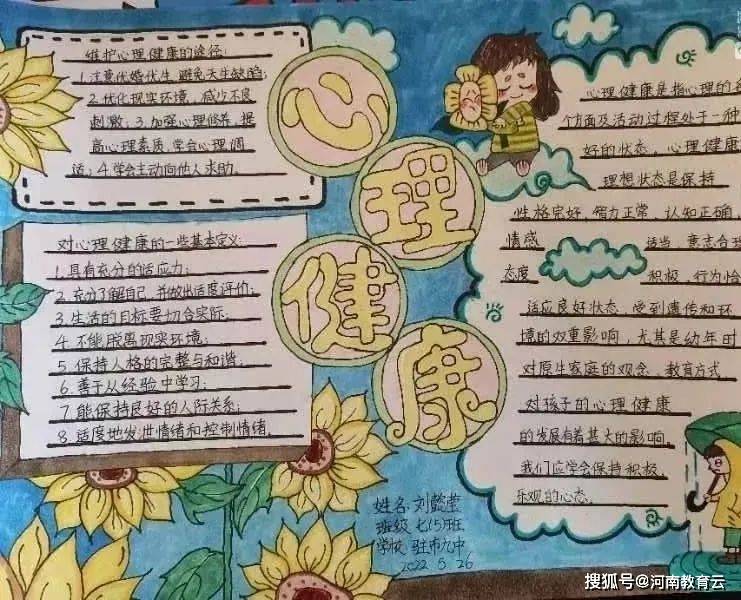 维护心理健康的途径:
1.注意优婚优生,避免先天缺陷;
2.优化现实环境,减少不良
刺激;3.加强心理修养,提
高心理素质,学会心理调
适;4.学会主动向他人求助。
对心理健康的一些基本定义:
1.具有充分的适应力;
2.充分了解自己,并做出适度评价;
3.生活的目标要切合实际;
4.不能脱离现实环境;
5.保持人格的完整与和谐;
6.善于从经验中学习;
7.能保持良好的人际关系;
8.适度地发泄情绪和控制情绪。
心理健康
心理健康是指心理的各
个方面及活动过程处于一种
好的状态。心理健康
理想状态是保持
性格完好、智力正常、认知正确、
情感 适当、意志合理
态度 积极、行为恰
适应良好状态。受到遗传和环
境的双重影响,尤其是幼年时
对原生家庭的观念、教育方式
对孩子的心理健康
的发展有着甚大的影响。
我们应学会保持积极、
乐观的心态。
姓名:刘懿莹
班级 七(5)班
学校 驻市九中
2022 5.26
搜狐号@河南教育云